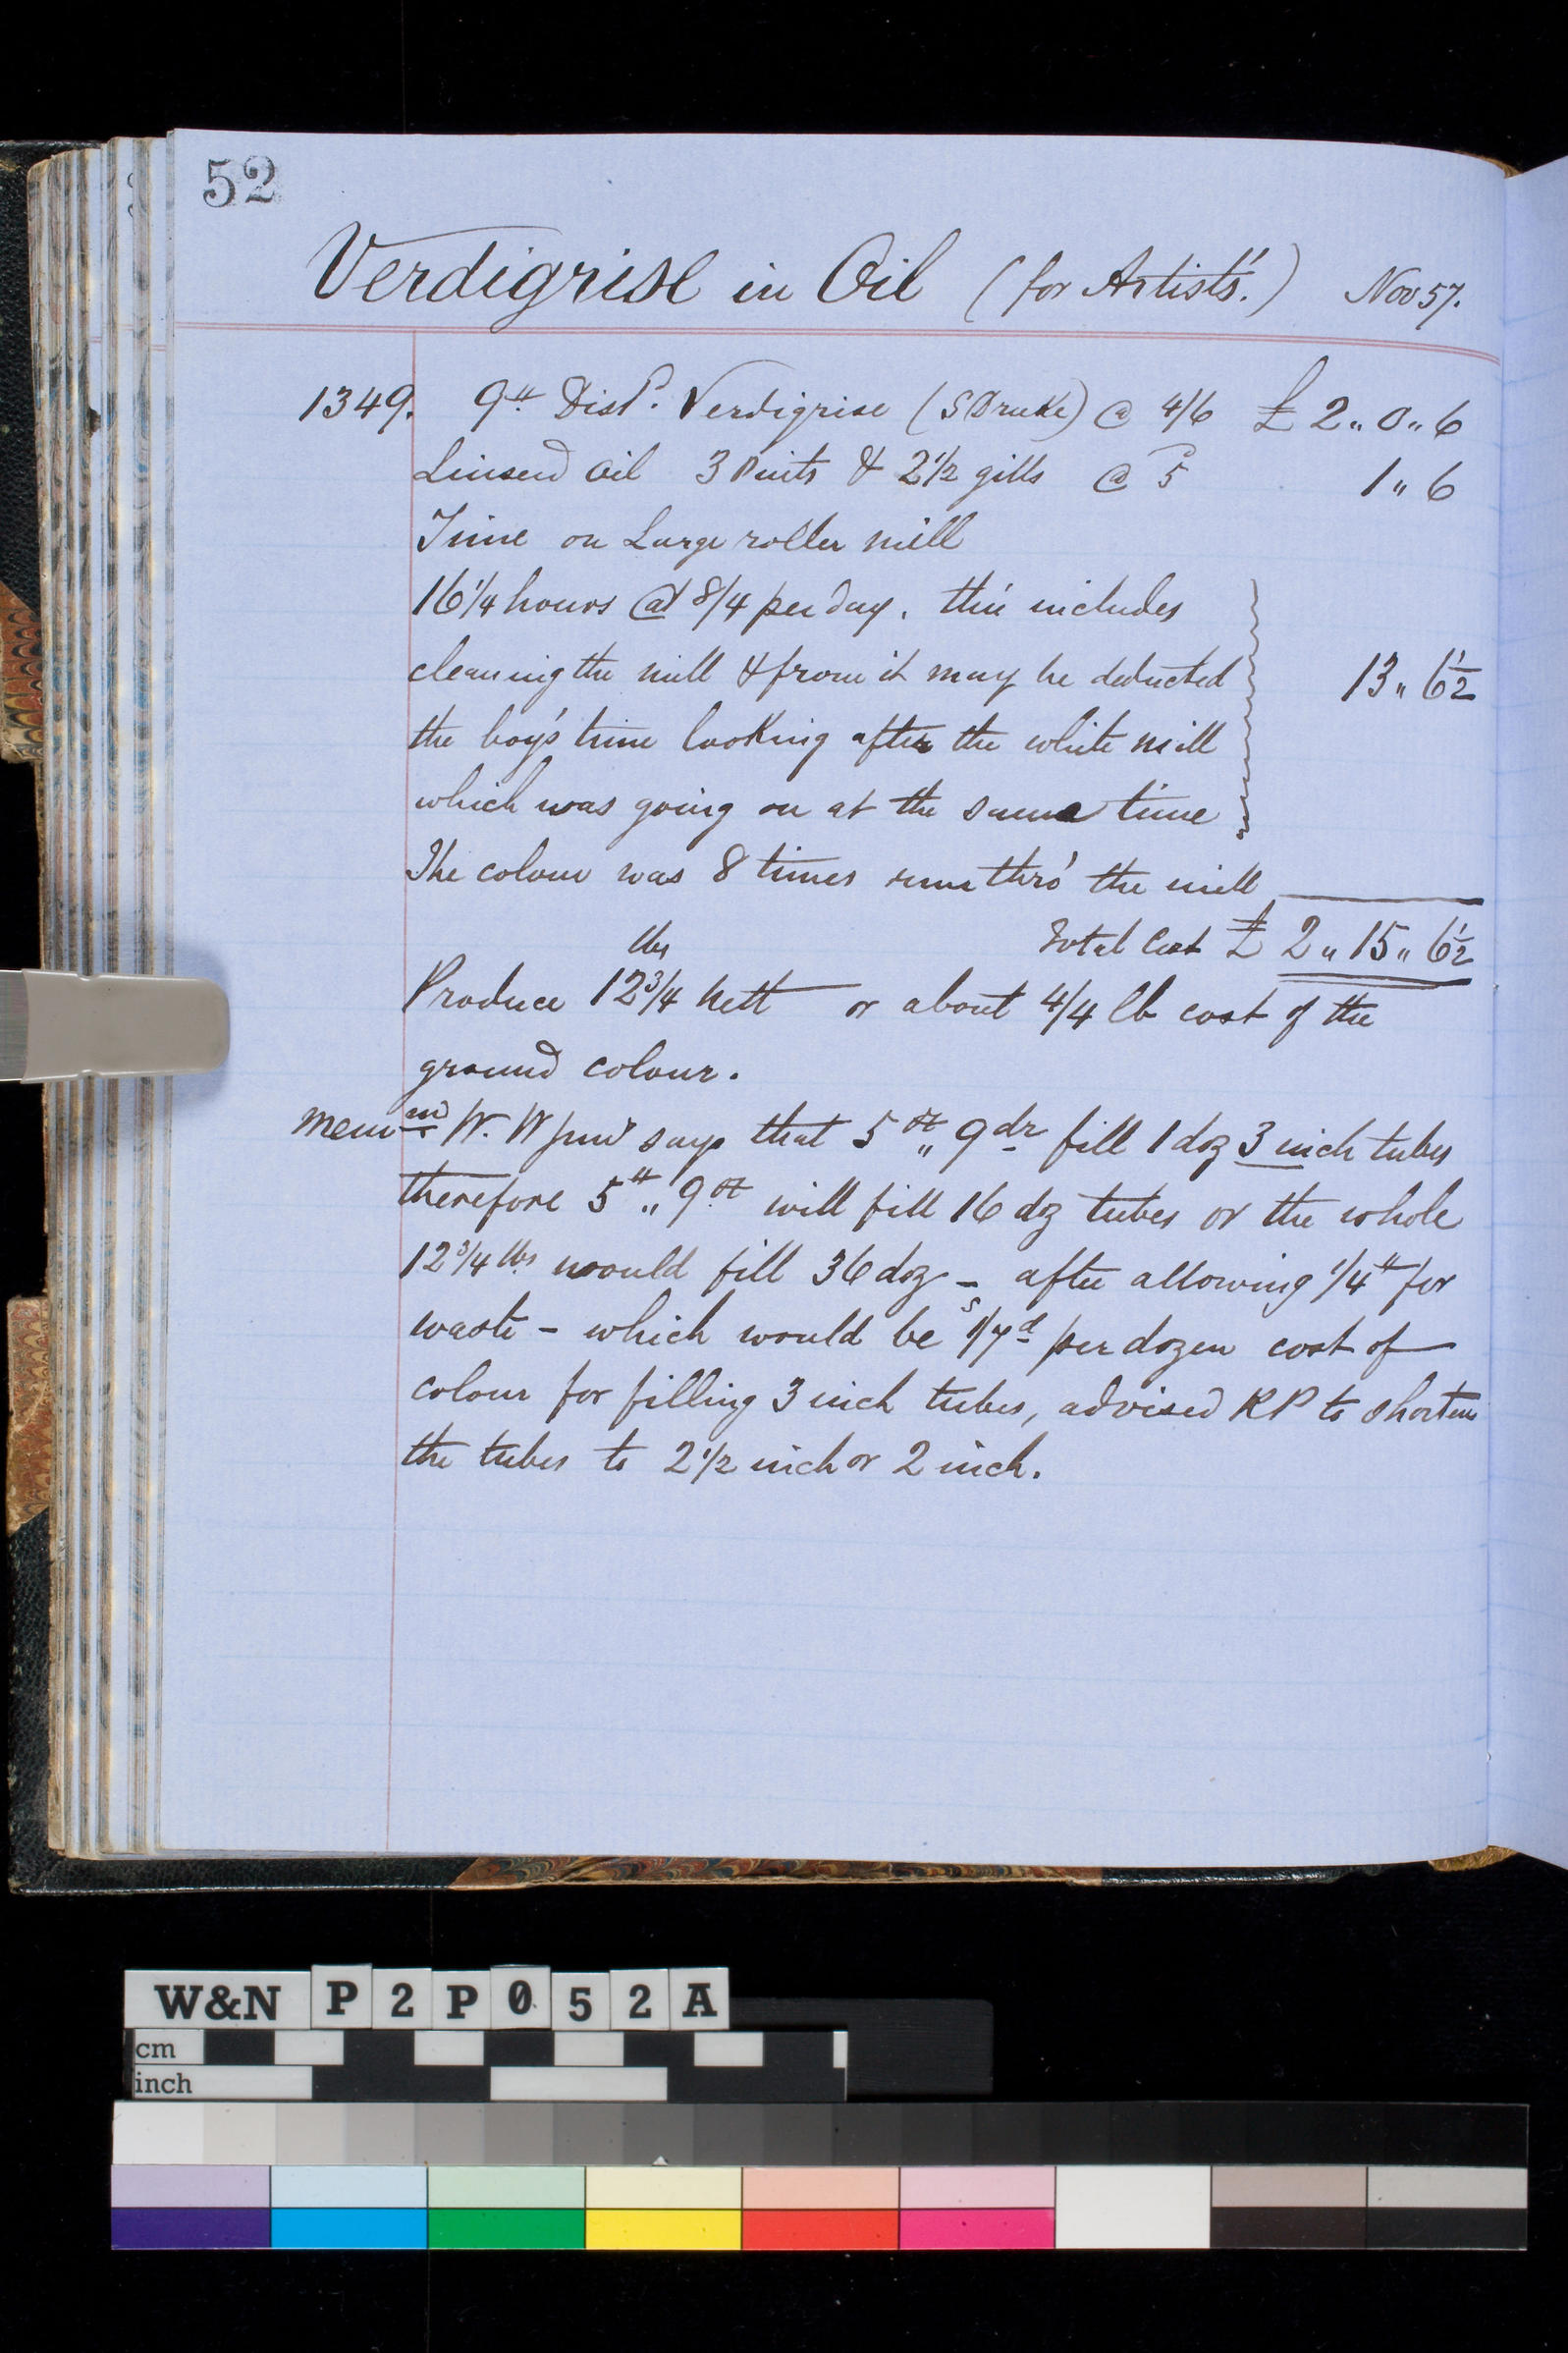 52
Verdigrise in Oil (for Artists'.) Nov 57.
1349. 9 lb Dist. Verdigrise (S Druke) @ 4/6 £ 2 „ 0 „ 6
Linseed Oil 3 Pints & 2 1/2 gills @ 5 1 „ 6
Time on Large roller mill
16 1/4 hours @ 8/4 per day. this includes
cleaning the mill & from it may be deducted 13 „ 6 1/2
the boy's time looking after the white mill
which was going on at the same time
The colour was 8 times run thro' the mill
Total Cost £ 2 „ 15 „ 6 1/2
lbs
Produce 12 3/4 nett or about 4/4 lb cost of the
ground colour.
Memm W. W junr says that 5 oz „ 9 dr fill 1 doz 3 inch tubes
therefore 5 lb „ 9 oz will fill 16 dz tubes or the whole
12 3/4 lbs would fill 36 doz - after allowing 1/4 lb for
waste - which would be s 1/7 d per dozen cost of
colour for filling 3 inch tubes, advised RP to shorten
the tubes to 2 1/2 inch or 2 inch.
W&N P2P052A
cm
inch